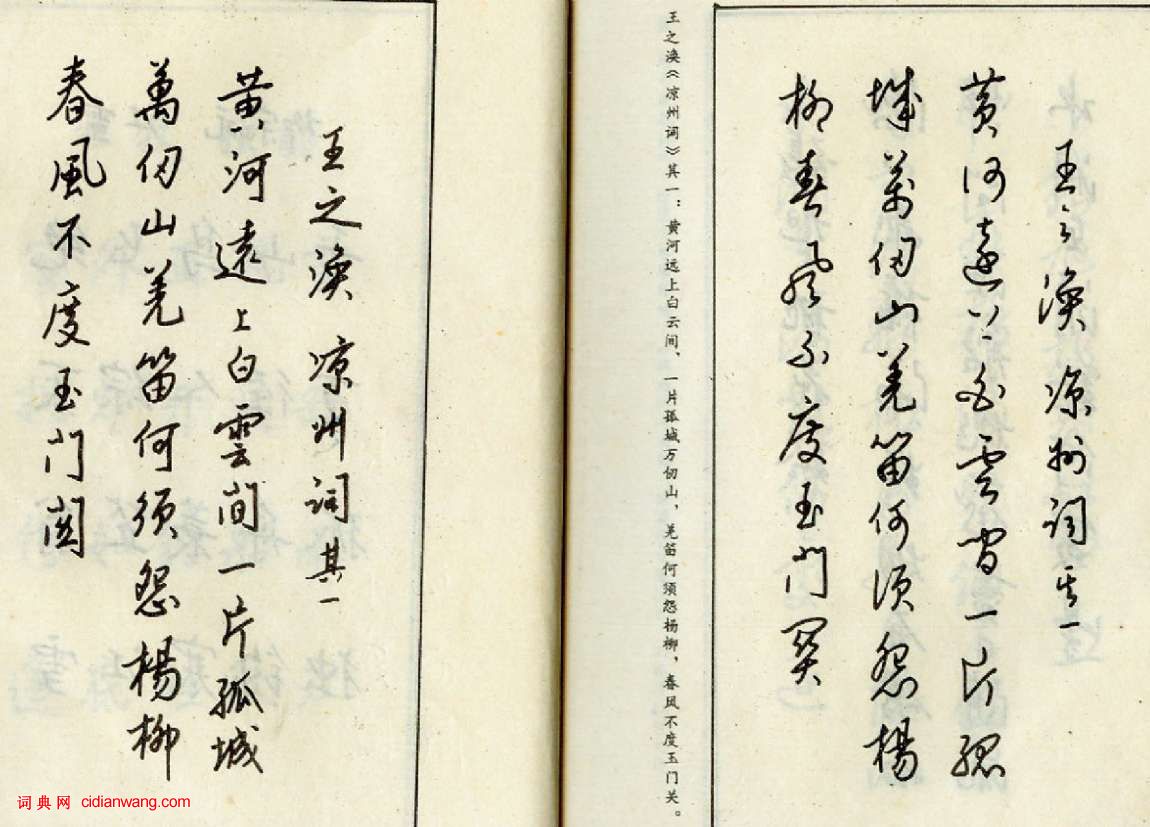 王之渙 凉州詞其一
黄河遠上白雲間一片孤
城萬仞山羌笛何須怨楊
柳春風不度玉門関
王之涣《凉州词》其一：黄河远上白云间、一片孤城万仞山、羌笛何须怨杨柳、春风不度玉门关。
王之渙 凉州詞其一
黄河遠上白雲間一片孤城
萬仞山羌笛何須怨楊柳
春風不度玉門関
词典网 cidianwang.com